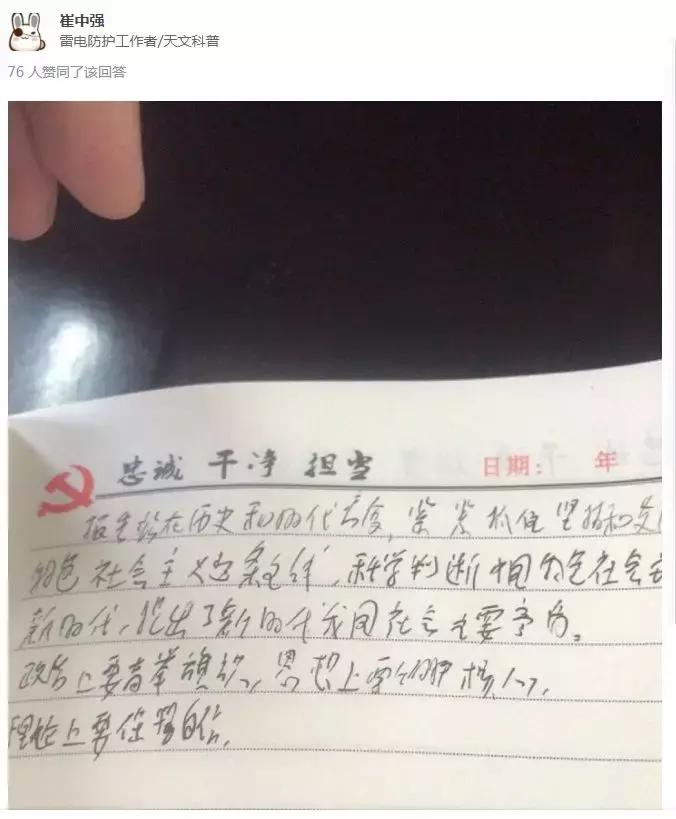 崔中强
雷电防护工作者/天文科普
76 人赞同了该回答
忠诚 干净 担当 日期： 年
报告站在历史和时代高度，紧紧抓住坚持和发
特色社会主义这条主线，科学判断中国特色社会主
新时代，提出了新时代我国社会主要矛盾。
政治上要高举旗帜，思想上要
理论上要保坚自信，